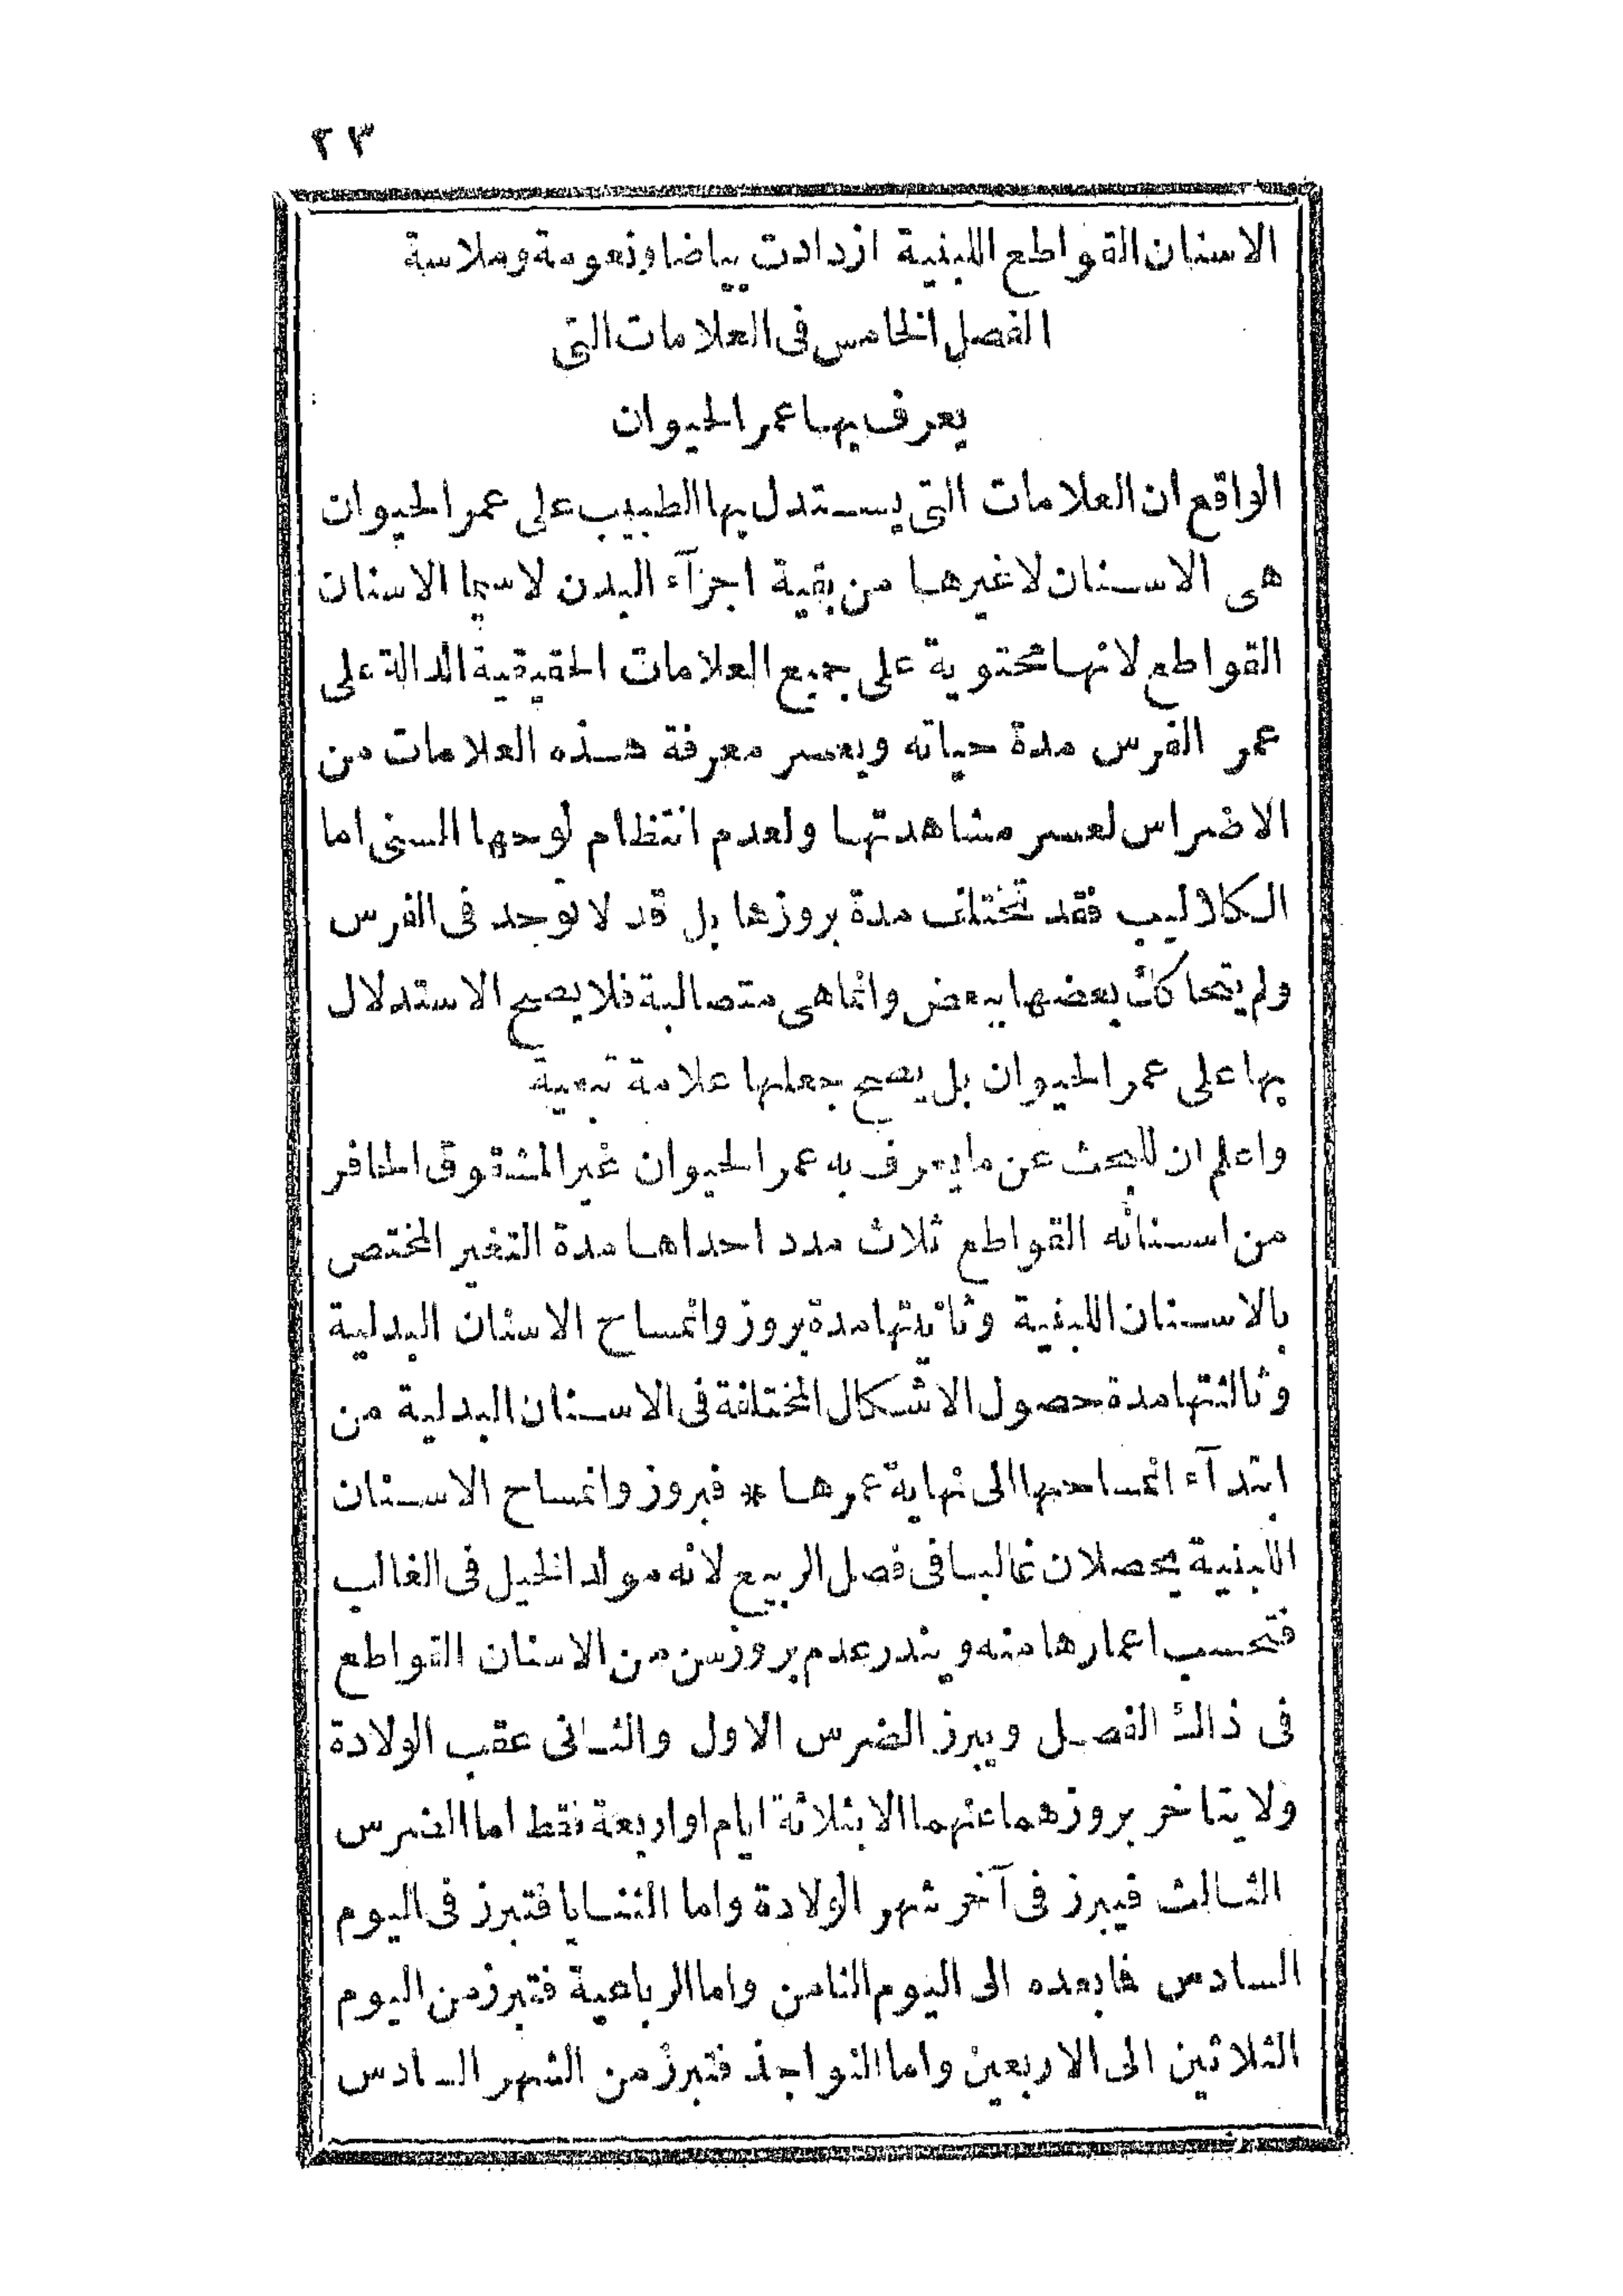 ٢٣
الاسنان القواطع اللبنية ازدادت بياضا ونعومة وملاسة
الفصل الخامس فى العلامات التى
يعرف بها عمر الحيوان
الواقع ان العلامات التى يستدل بها الطبيب على عمر الحيوان
هى الاسنان لاغيرها من بقية اجزآء البدن لاسيما الاسنان
القواطع لانها محتوية على جميع العلامات الحقيقية الدالة على
عمر الفرس مدة حياته ويعسر معرفة هذه العلامات من
الاضراس لعسر مشاهدتها ولعدم انتظام لوحها السنى اما
الكلاليب فقد تختلف مدة بروزها بل قد لا توجد فى الفرس
ولم يتحاكك بعضها ببعض وانما هى متصالبة فلا يصح الاستدلال
بها على عمر الحيوان بل يصح جعلها علامة تبعية
واعلم ان للبحث عن ما يعرف به عمر الحيوان غير المشقوق الحافر
من اسنانه القواطع ثلاث مدد احداها مدة التغير المختص
بالاسنان اللبنية وثانيتها مدة بروز وانمساح الاسنان البدلية
وثالثتها مدة حصول الاشكال المختلفة فى الاسنان البدلية من
ابتدآء انمساحها الى نهاية عمرها * فبروز وانمساح الاسنان
اللبنية يحصلان غالبا فى فصل الربيع لانه مولد الخيل فى الغالب
فتحسب اعمارها منه ويندر عدم بروز سن من الاسنان القواطع
فى ذالك الفصل ويبرز الضرس الاول والثانى عقب الولادة
ولا يتاخر بروزهما عنهما الا بثلاثة ايام او اربعة فقط اما الضرس
الثالث فيبرز فى آخر شهر الولادة واما الثنايا فتبرز فى اليوم
السادس فما بعده الى اليوم الثامن واما الرباعية فتبرز من اليوم
الثلاثين الى الاربعين واما النواجذ فتبرز من الشهر السادس